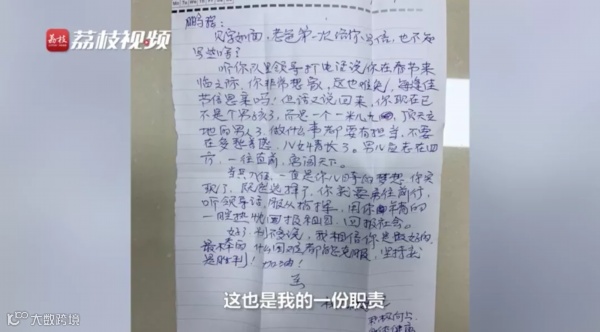 荔枝
荔枝视频
鹏瑶:
见字如面,老爸第一次给你写信,也不知
写些啥?
听你队里领导打电话说你在春节来
临之际,你非常想家,这也难免,每逢佳
节倍思亲吗!但话又说回来,你现在已
不是个男孩了,而是一个一米几九,顶天立
地的男人了,做什么事都要有担当,不要
在多愁善感,儿女情长了。男儿应志在四
方,一往直前,勇闯天下。
当兵入伍,一直是你儿时的梦想,你实
现了,既然选择了,你就要勇往前行,
听领导话,服从指挥,用你年青的
一腔热忱回报祖国,回报社会。
好了,别不多说,我相信你是最好的
最棒的,什么困难都能克服,坚持就
是胜利!加油!
这也是我的一份职责
积极向上
身体健康
大数跨境